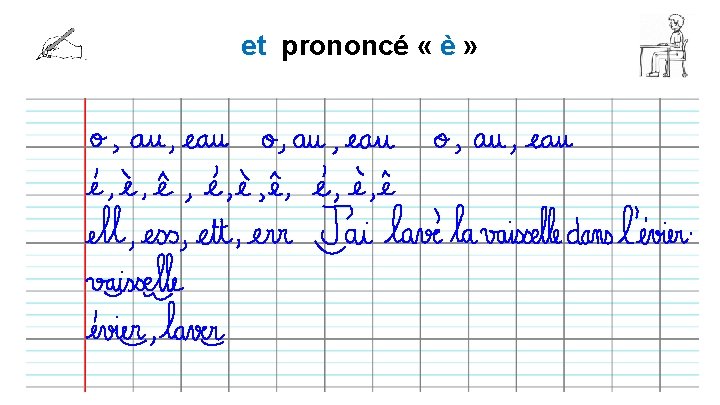 et prononcé « è »
o, au, eau o, au, eau o, au, eau
é, è, ê, é, è, ê, é, è, ê
ell, ess, ett, err J'ai lavè la vaisselle dans l'évier.
vaisselle
évier, laver